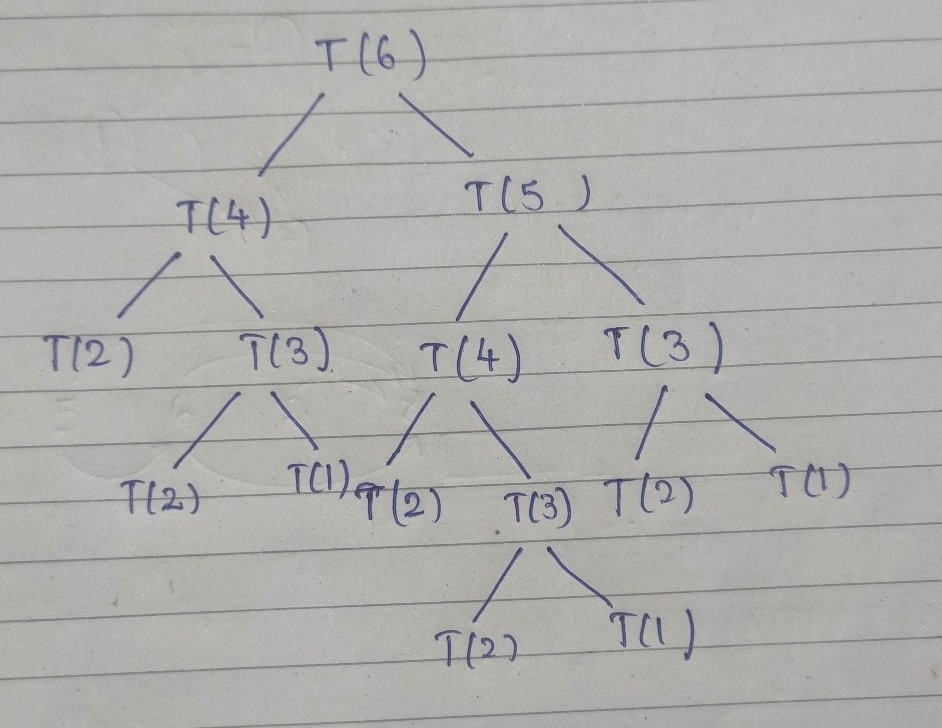 T(6)
T(4) T(5)
T(2) T(3) T(4) T(3)
T(2) T(1) T(2) T(3) T(2) T(1)
T(2) T(1)